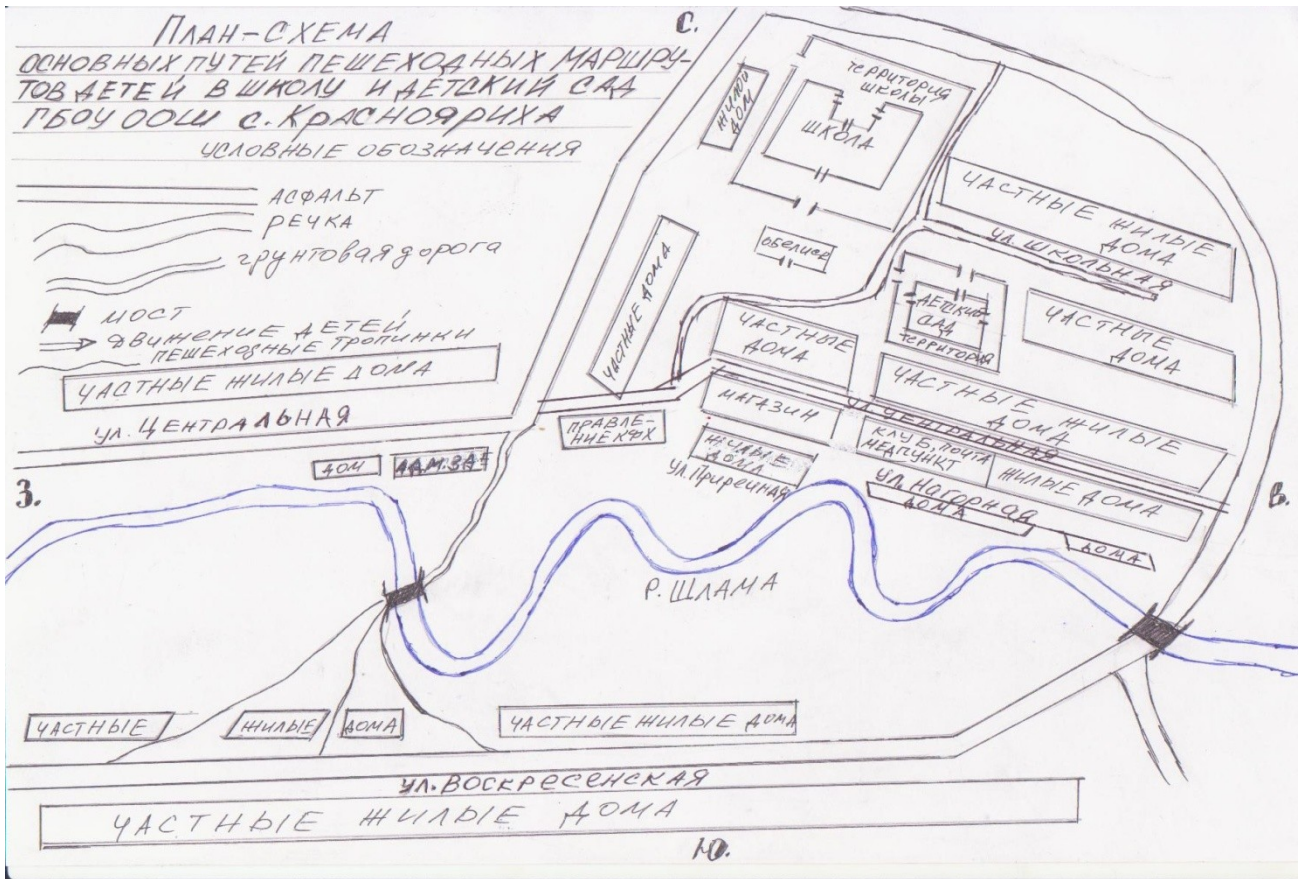 ПЛАН-СХЕМА
ОСНОВНЫХ ПУТЕЙ ПЕШЕХОДНЫХ МАРШРУ-
ТОВ ДЕТЕЙ В ШКОЛУ И ДЕТСКИЙ САД
ГБОУ ООШ с. КРАСНОЯРИХА
УСЛОВНЫЕ ОБОЗНАЧЕНИЯ
АСФАЛЬТ
РЕЧКА
грунтовая дорога
МОСТ
ДВИЖЕНИЕ ДЕТЕЙ
ПЕШЕХОДНЫЕ ТРОПИНКИ
ЧАСТНЫЕ ЖИЛЫЕ ДОМА
ул. ЦЕНТРАЛЬНАЯ
ДОМ
АДМ. ЗД.
З.
С.
ЖИЛОЙ
ДОМ
ТЕРРИТОРИЯ
ШКОЛЫ
ШКОЛА
ОБЕЛИСК
ЧАСТНЫЕ ДОМА
ЧАСТНЫЕ ЖИЛЫЕ
ДОМА
УЛ. ШКОЛЬНАЯ
ДЕТСКИЙ
САД
ТЕРРИТОРИЯ
ЧАСТНЫЕ
ДОМА
ЧАСТНЫЕ
ДОМА
ЧАСТНЫЕ ЖИЛЫЕ
ДОМА
ПРАВЛЕ-
НИЕ КФХ
МАГАЗИН
УЛ. ЦЕНТРАЛЬНАЯ
ЖИЛЫЕ
ДОМА
Ул. Приречная
КЛУБ, ПОЧТА
МЕДПУНКТ
ЖИЛЫЕ ДОМА
Ул. Нагорная
ДОМА
ДОМА
В.
Р. ШЛАМА
ЧАСТНЫЕ
ЖИЛЫЕ
ДОМА
ЧАСТНЫЕ ЖИЛЫЕ ДОМА
ул. ВОСКРЕСЕНСКАЯ
ЧАСТНЫЕ ЖИЛЫЕ ДОМА
Ю.